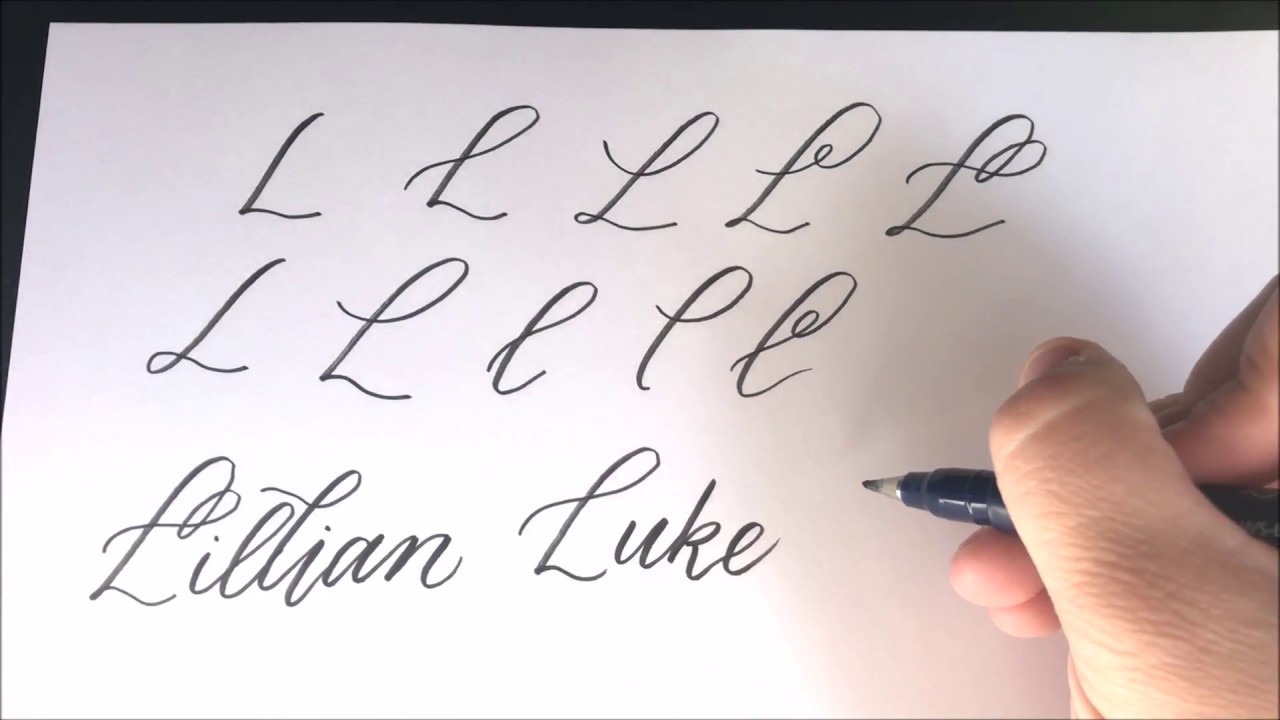 L L L L L
L L L L L
Lillian Luke